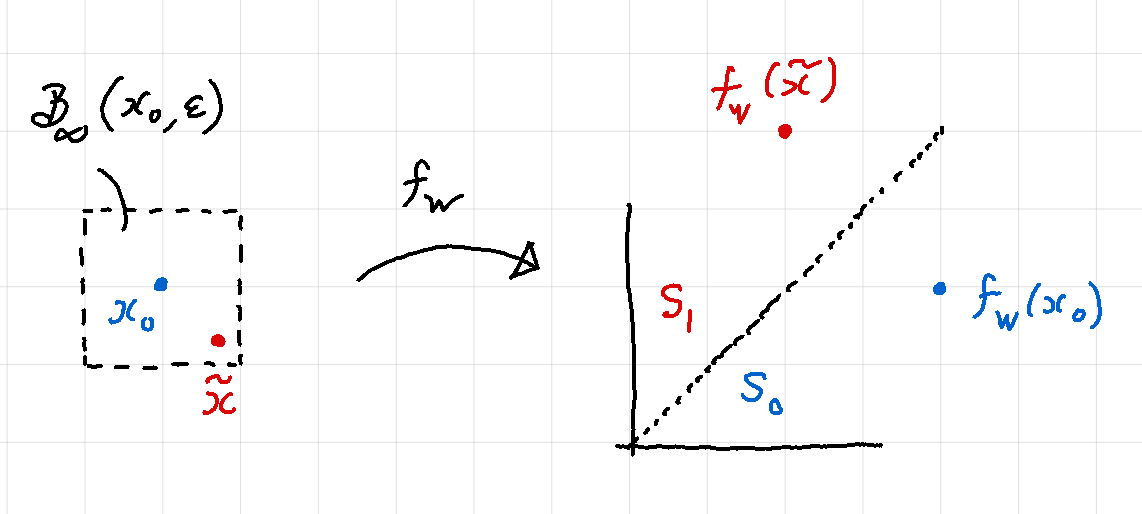 B∞(x₀, ε)
x₀
x̃
f_w
f_w(x̃)
S₁
S₀
f_w(x₀)